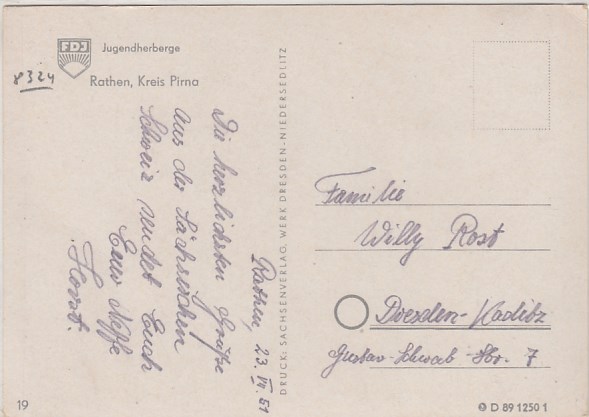 FDJ
Jugendherberge
Rathen, Kreis Pirna
8324
Rathen, 23. VII. 51
Die herzlichsten Grüße
aus der Sächsischen
Schweiz sendet Euch
Euer Neffe
Horst.
DRUCK: SACHSENVERLAG, WERK DRESDEN-NIEDERSEDLITZ
Familie
Willy Rost
Dresden-Kaditz
Gustav-Schwab-Str. 7
19
D 89 1250 1